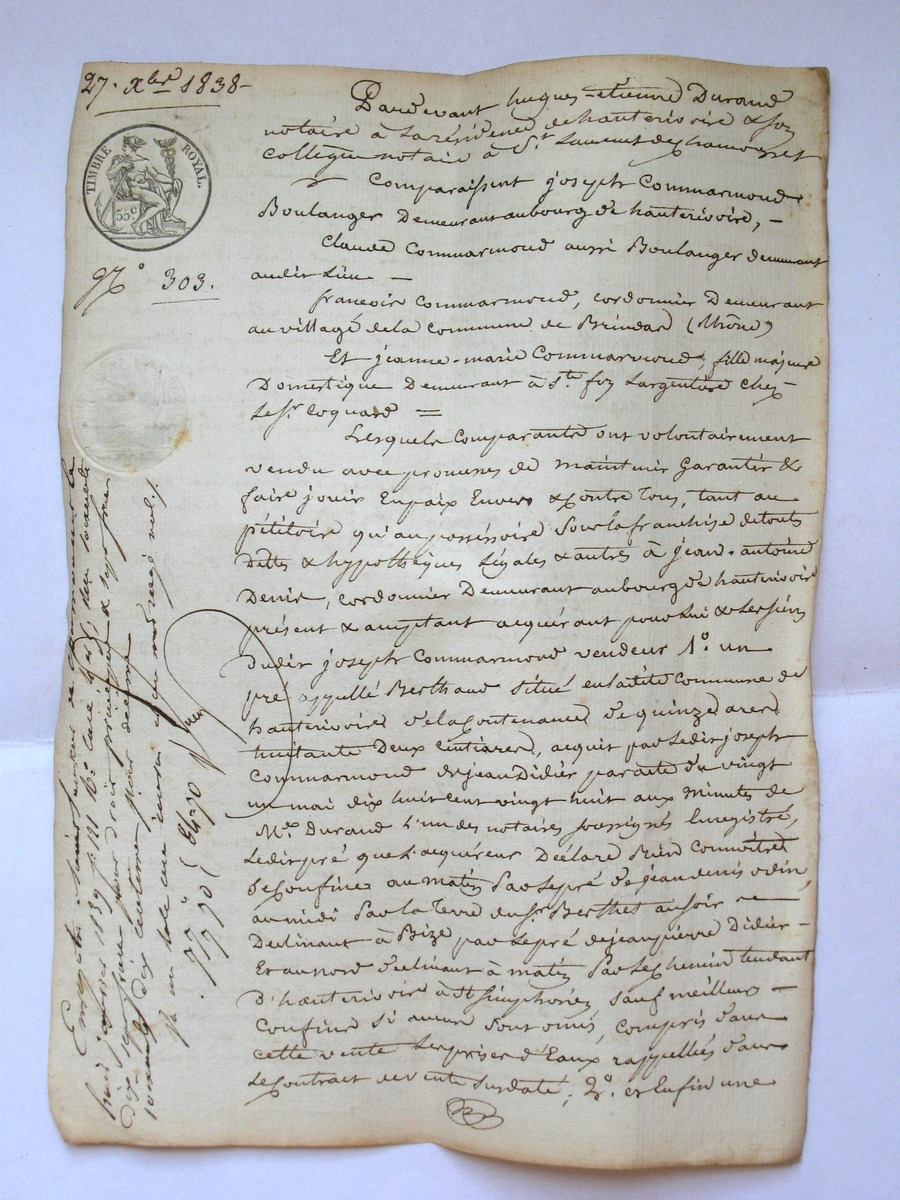 27. Xbre 1838
TIMBRE ROYAL
35 c
N° 303.
Pardevant hugues-etienne Durand
notaire à la résidence de hauterivoire & son
collègue notaire à St. Laurent de chamousset
Comparaissent joseph Commarmond
Boulanger Demeurant au bourg de hauterivoire,
Claude Commarmond aussi Boulanger demeurant
audit lieu
françois Commarmond, cordonnier Demeurant
au village de la commune de Brindas (Rhône)
Et jeanne-marie Commarmond, fille majeure
Domestique Demeurant à Ste foy Largentière chez
le Sr. Coquard =
Lesquels Comparants ont volontairement
vendu avec promesses de maintenir Garantir &
faire jouir En paix Envers & contre Tous, tant au
pétitoire qu'au possessoire sous la franchise de touts
Dettes & hypothèques Légales & autres à jean-antoine
Denis, cordonnier Demeurant au bourg de hauterivoire
présent & acceptant acquérant pour Lui & les siens
Dudit joseph Commarmond vendeur 1° un
pré appellé Berthaud situé en ladite Commune de
hauterivoire de la Contenance de quinze ares
huitante Deux Centiares, acquit par ledit joseph
Commarmond de jean Didier par acte du vingt
un mai dix huit cent vingt huit aux minutes de
Me. Durand l'un des notaires soussignés Enregistré,
Ledit pré que L'acquéreur Déclare Bien Connoître
Se Confine au matin par le pré de jean denis odin
au midi par la Terre du Sr Berthet au soir
Declinant à Bize par le pré de jean pierre Didier
Et au nord declinant à matin par le Chemin tendant
D'hauterivoire à St Simphorien sauf meilleurs
Confins si aucuns sont omis, compris dans
cette vente les prises d'Eaux rappellés dans
le Contrat de vente susdaté; 2°. et Enfin une
Enregistré à
janvier 1839 f° 121
pour droit principal
dix centimes pour decime
77" "
7 70
84=70